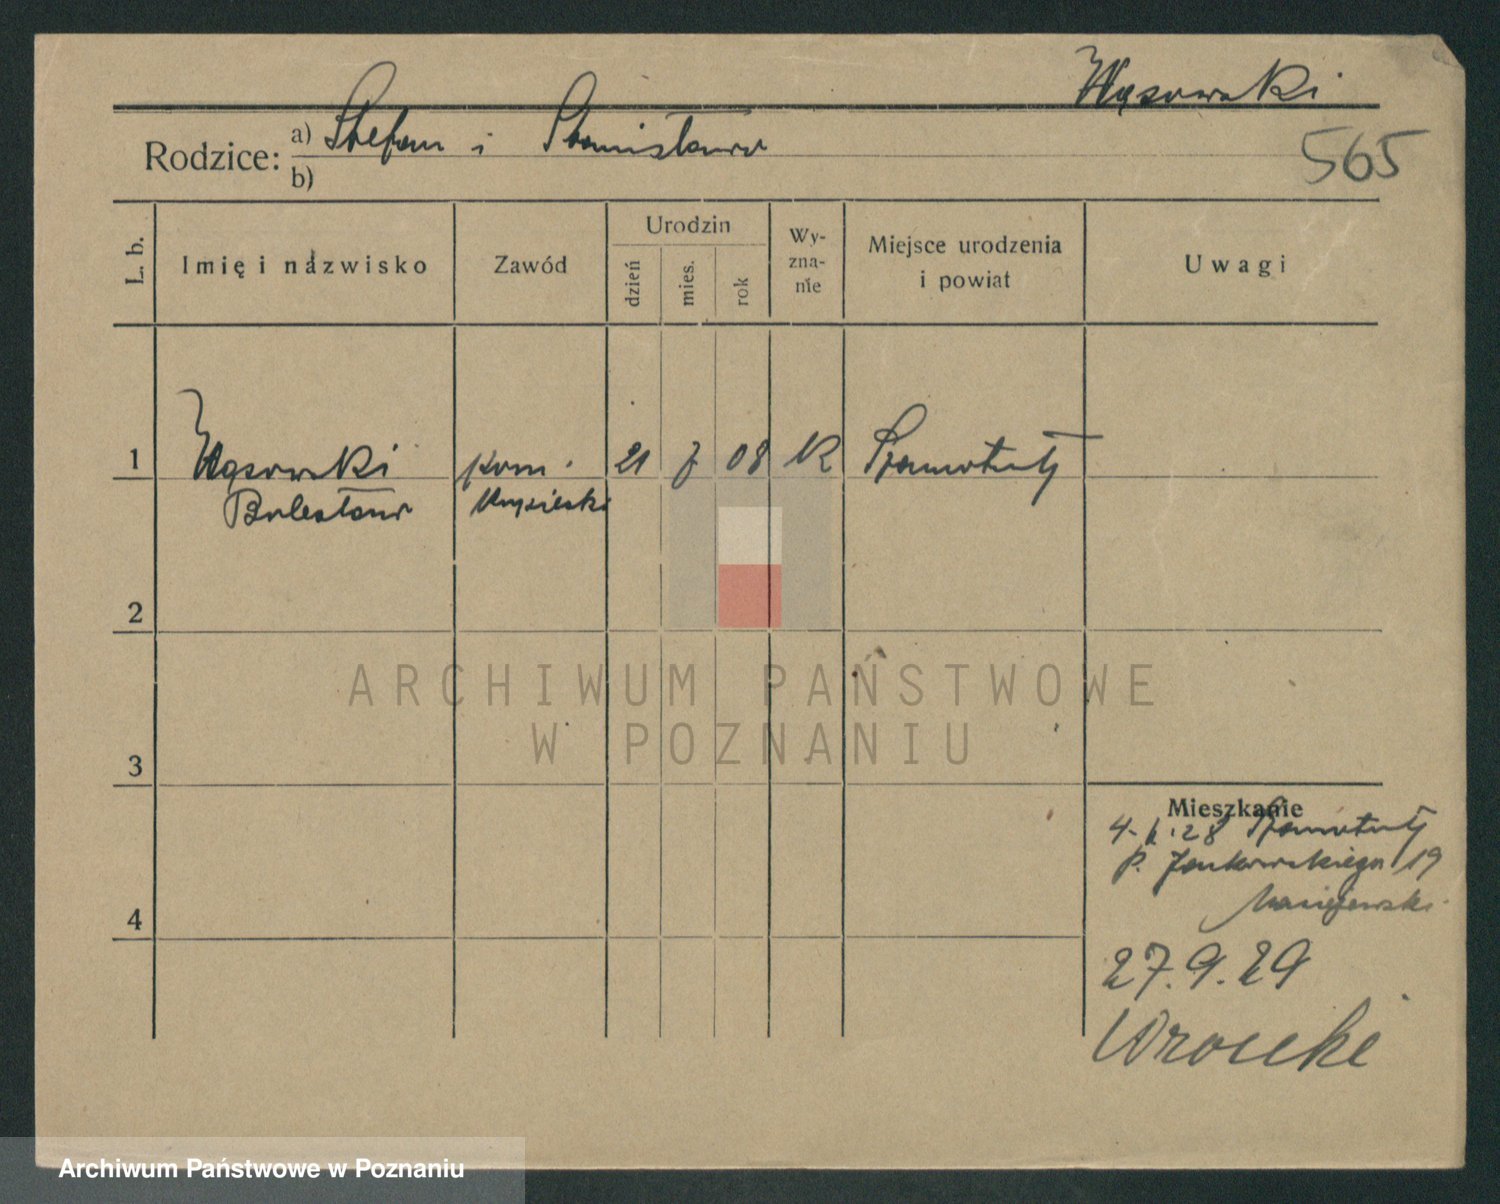 Wąsowski
Rodzice: a) Stefan i Stanisława
b)
565
L. b.
Imię i nazwisko
Zawód
Urodzin
dzień
mies.
rok
Wy-
zna-
nie
Miejsce urodzenia
i powiat
Uwagi
1 Wąsowski kom. 21 7 08 K Szamotuły
Bolesław
2
3
4
Mieszkanie
28 Szamotuły
19
27.9.29
Wronki
ARCHIWUM PAŃSTWOWE
W POZNANIU
Archiwum Państwowe w Poznaniu